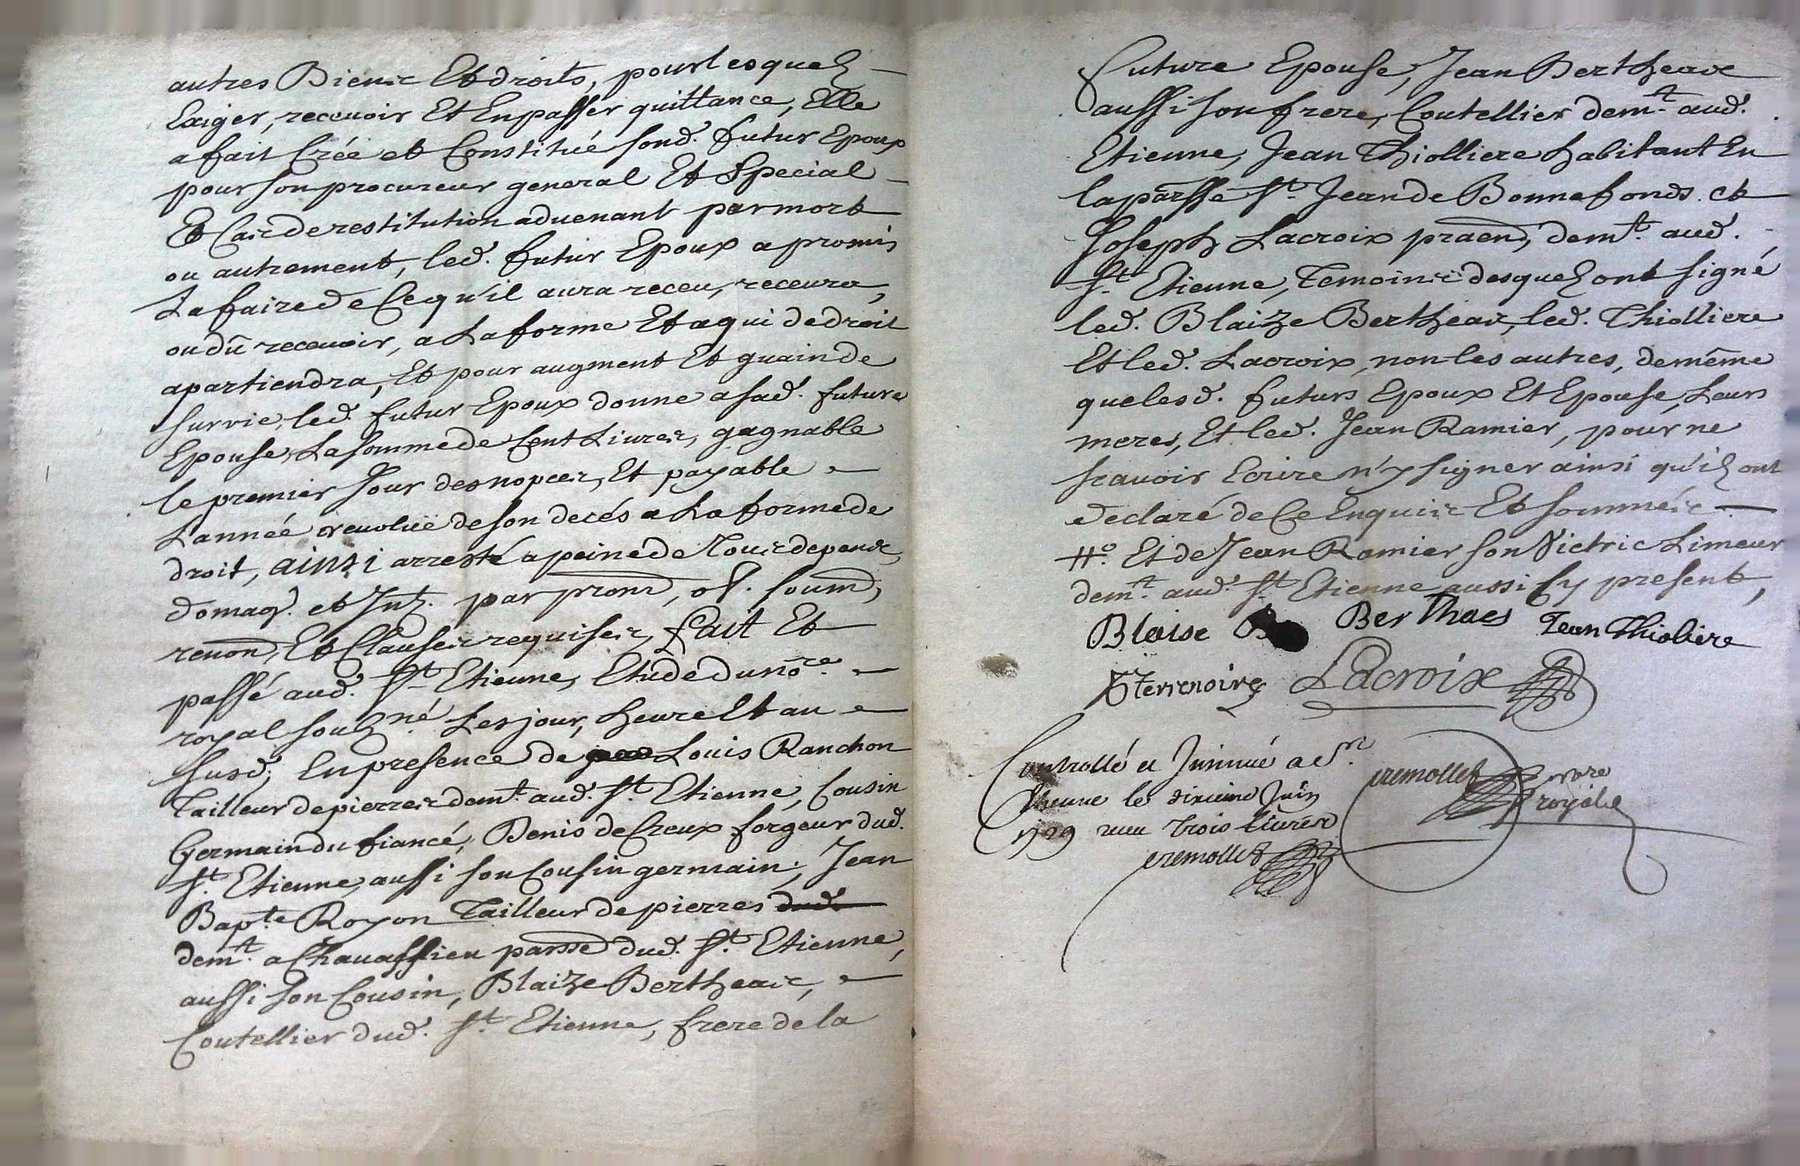 autres Biens Et droits, pour lesquels
Exiger, recevoir Et En passer quittance, Elle
a fait Créé et Constitué sond. futur Epoux
pour son procureur general Et Special
Et Cas de restitution advenant par mort
ou autrement, led. futur Epoux a promis
La faire de Ce qu'il aura receu, recevra,
ou dû recevoir, a La forme Et a qui de droit
apartiendra, Et pour augment Et guain de
survie, led. futur Epoux donne a sad. future
Epouse, La somme de Cent Livres, gagnable
le premier Jour des nopces, Et payable
L'année revoluë de son decés a La forme de
droit, ainsi arresté a peine de Tous depens,
domag. et Int. par prom, ob. soum,
renon, Et Clauses requises, fait Et
passé aud. St Etienne, Etude du nore.
royal souz.né Les jour, heure Et an
susd; En presence de Louis Ranchon
Tailleur de pierres demt. aud. St. Etienne, Cousin
Germain du fiancé, Denis de Creux forgeur dud.
St. Etienne, aussi son Cousin germain, Jean
Bapte. Royon Tailleur de pierres dud.
demt. a Chavassieu parsse dud. St. Etienne,
aussi son Cousin, Blaize Bertheas,
Coutellier dud. St. Etienne, frere de la
future Epouse, Jean Bertheas
aussi son frere, Coutellier demt. aud.
Etienne, Jean Thiolliere habitant En
la parsse St. Jean de Bonnefonds. et
Joseph Lacroix praticn, demt. aud.
St. Etienne, Temoins desquels ont signé
led. Blaize Bertheas, led. Thiolliere
Et led. Lacroix, non les autres, de même
que lesd. futurs Epoux Et Epouse, Leurs
meres, Et led. Jean Ramier, pour ne
scavoir Ecrire n'y signer ainsi qu'ils ont
declaré de Ce Enquis Et sommés
#o. Et de Jean Ramier son Victric Limeur
demt. aud. St Etienne aussi Cy present,
Blaise Berthaes Jean Thioliere
Terrenoire Lacroix
Controllé et Insinué a St.
Etienne le dixieme Juin
1729 receu trois Livres
premollet nore
royal
premollet